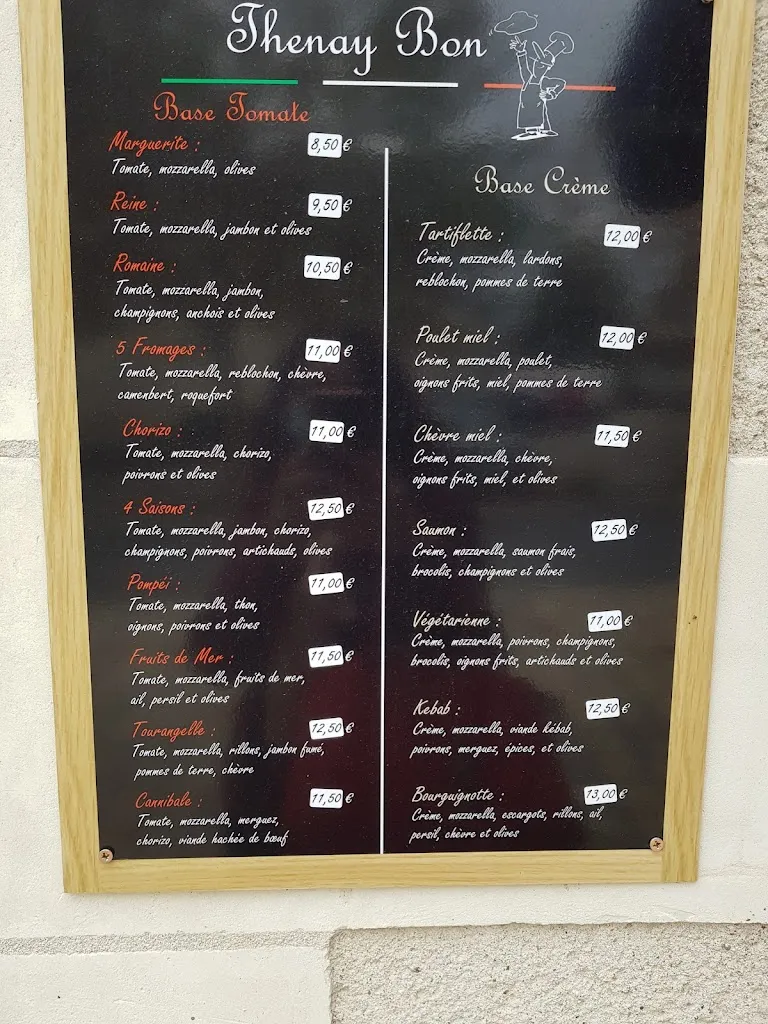 Thenay Bon
Base Tomate
Marguerite : 8,50 €
Tomate, mozzarella, olives
Reine : 9,50 €
Tomate, mozzarella, jambon et olives
Romaine : 10,50 €
Tomate, mozzarella, jambon,
champignons, anchois et olives
5 Fromages : 11,00 €
Tomate, mozzarella, reblochon, chèvre,
camenbert, roquefort
Chorizo : 11,00 €
Tomate, mozzarella, chorizo,
poivrons et olives
4 Saisons : 12,50 €
Tomate, mozzarella, jambon, chorizo,
champignons, poivrons, artichauds, olives
Pompéi : 11,00 €
Tomate, mozzarella, thon,
oignons, poivrons et olives
Fruits de Mer : 11,50 €
Tomate, mozzarella, fruits de mer,
ail, persil et olives
Tourangelle : 12,50 €
Tomate, mozzarella, rillons, jambon fumé,
pommes de terre, chèvre
Cannibale : 11,50 €
Tomate, mozzarella, merguez,
chorizo, viande hachée de bœuf
Base Crème
Tartiflette : 12,00 €
Crème, mozzarella, lardons,
reblochon, pommes de terre
Poulet miel : 12,00 €
Crème, mozzarella, poulet,
oignons frits, miel, pommes de terre
Chèvre miel : 11,50 €
Crème, mozzarella, chèvre,
oignons frits, miel, et olives
Saumon : 12,50 €
Crème, mozzarella, saumon frais,
brocolis, champignons et olives
Végétarienne : 11,00 €
Crème, mozzarella, poivrons, champignons,
brocolis, oignons frits, artichauds et olives
Kebab : 12,50 €
Crème, mozzarella, viande kébab,
poivrons, merguez, épices, et olives
Bourguignotte : 13,00 €
Crème, mozzarella, escargots, rillons, ail,
persil, chèvre et olives